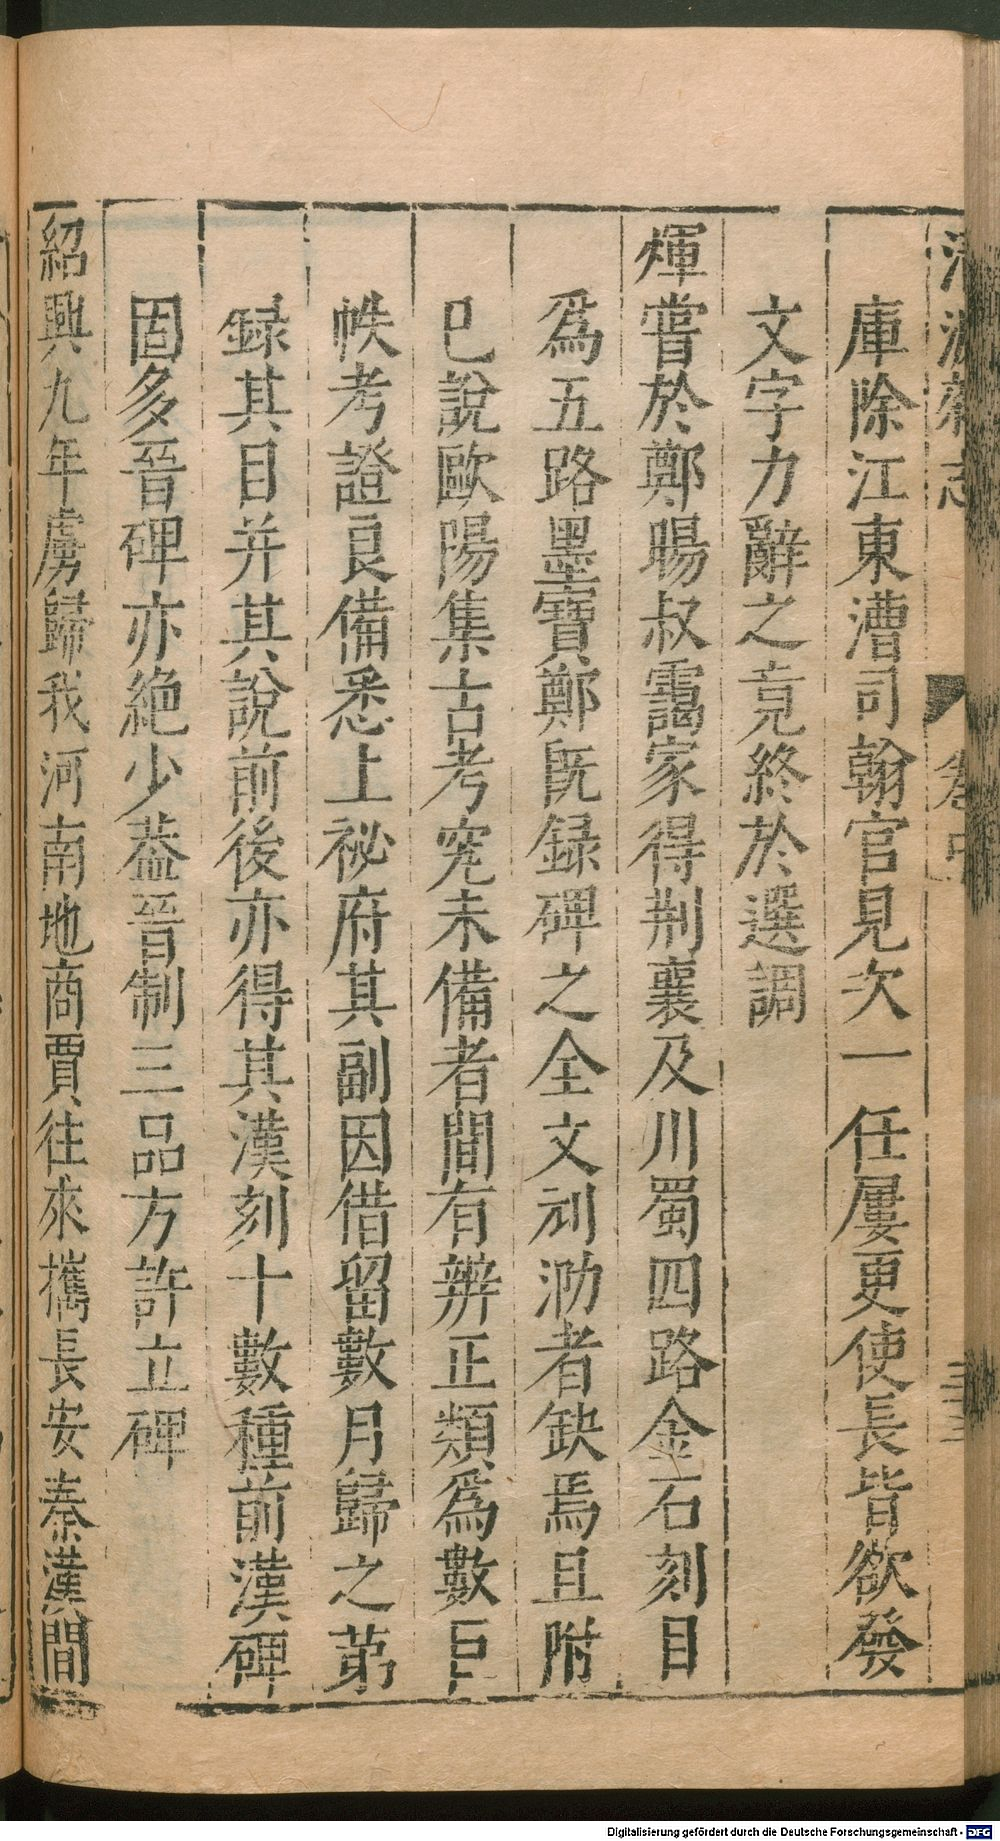 清波雜志
卷中
庫除江東漕司翰官見次一任屢更使長皆欲發
文字力辭之竟終於選調
煇嘗於鄭暘叔靄家得荆襄及川蜀四路金石刻目
爲五路墨寶鄭旣録碑之全文刓泐者缺焉且附
已說歐陽集古考究未備者間有辨正類爲數巨
帙考證良備悉上祕府其副因借留數月歸之苐
録其目并其說前後亦得其漢刻十數種前漢碑
固多晉碑亦絶少葢晉制三品方許立碑
紹興九年虜歸我河南地商賈往來攜長安秦漢間
Digitalisierung gefördert durch die Deutsche Forschungsgemeinschaft - DFG